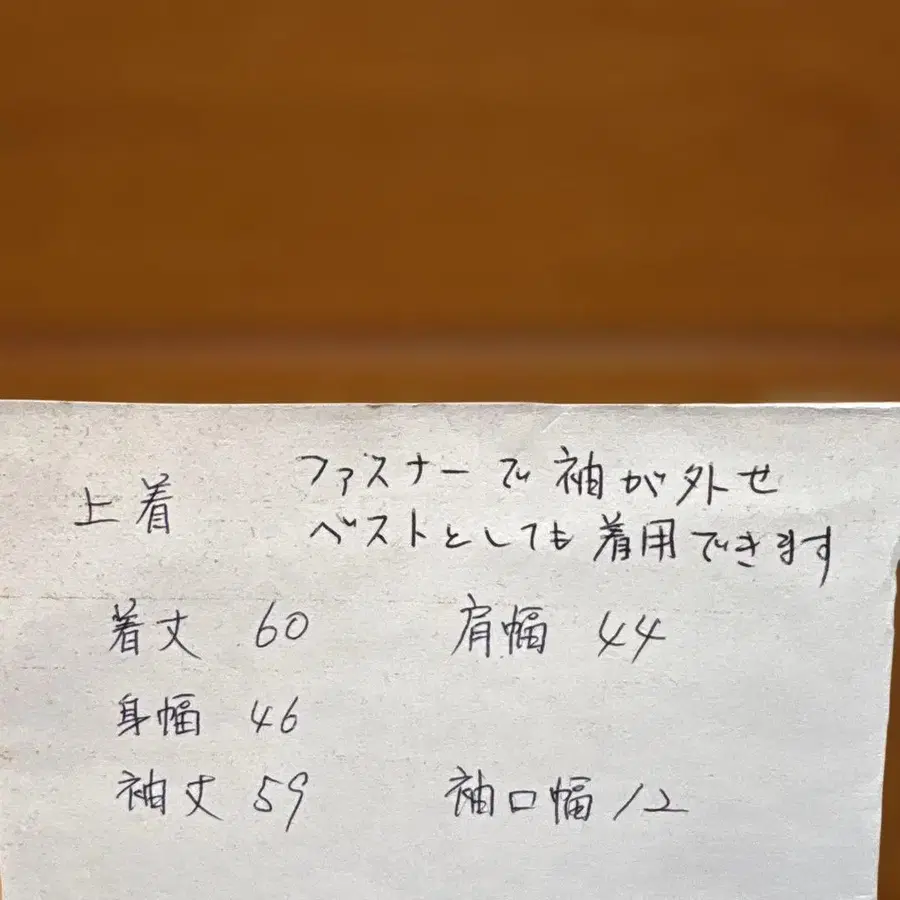 上着
ファスナーで袖が外せ
ベストとしても着用できます
着丈 60 肩幅 44
身幅 46
袖丈 59 袖口幅 12